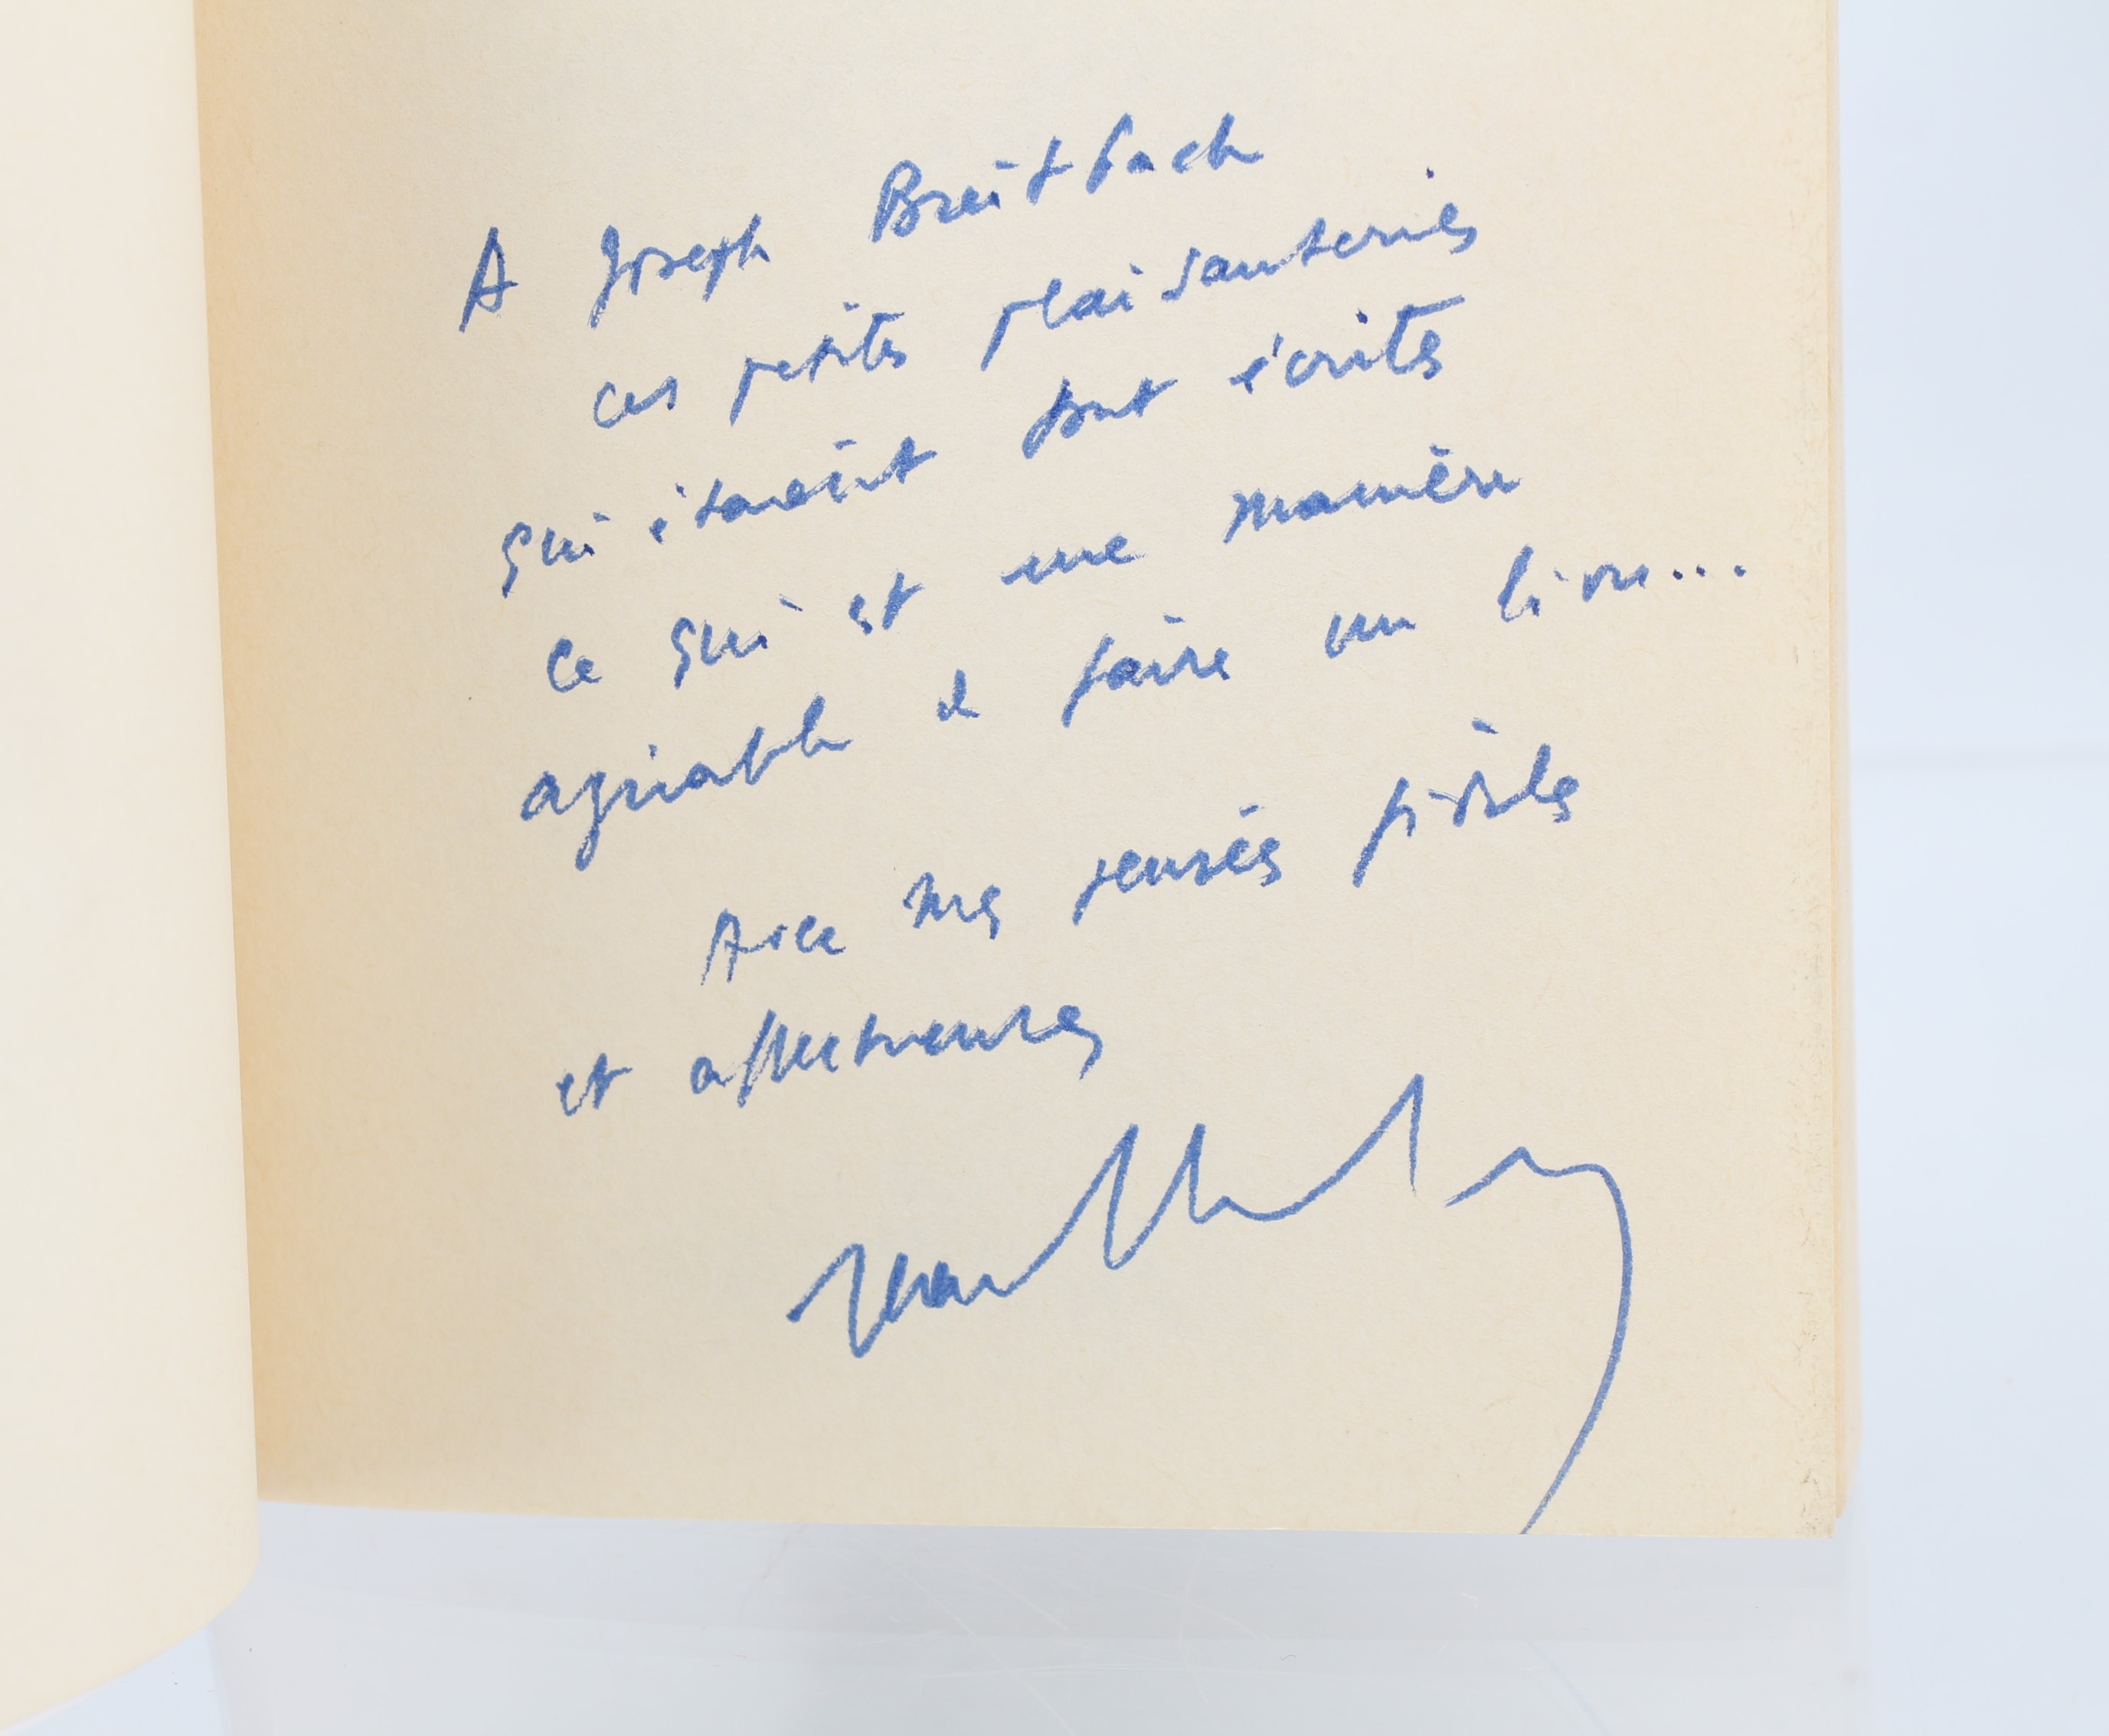 A Joseph Breitbach
ces petites plaisanteries
qui étaient tout écrites
ce qui est une manière
agréable de faire un livre...
Avec mes pensées fidèles
et affectueuses